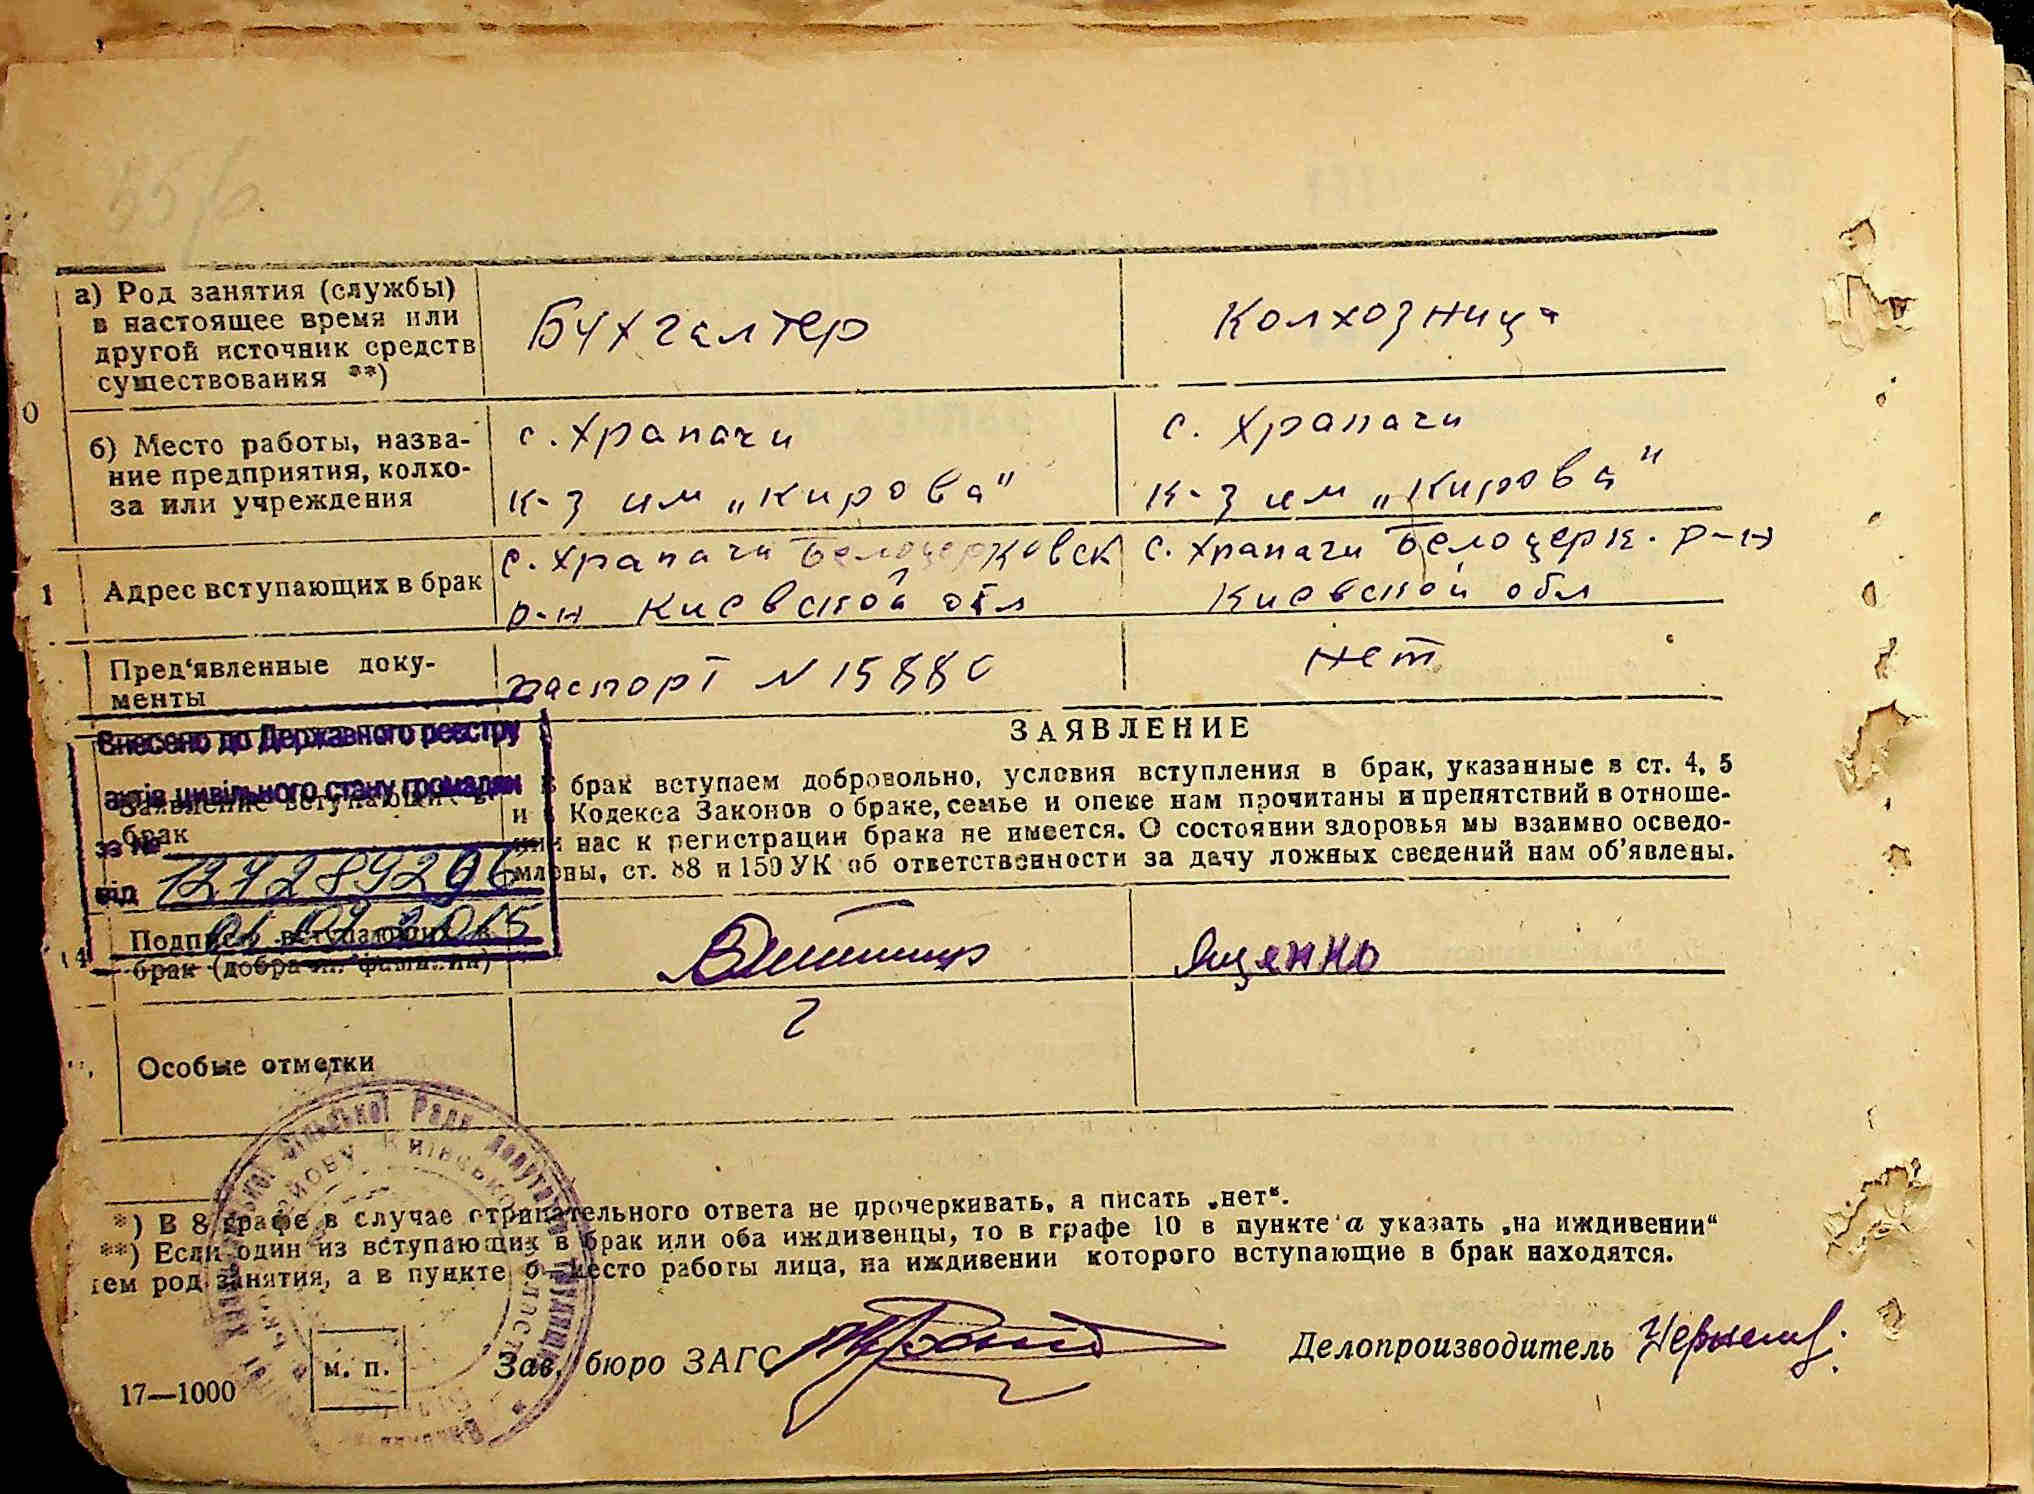 0
а) Род занятия (службы)
в настоящее время или
другой источник средств
существования **)
Бухгалтер
Колхозница
б) Место работы, назва-
ние предприятия, колхо-
за или учреждения
с. Храпачи
к-з им „Кирова"
с. Храпачи
к-з им „Кирова"
1
Адрес вступающих в брак
с. Храпачи Белоцерковск
р-н Киевской обл
с. Храпачи Белоцерк. р-н
Киевской обл
Пред'явленные доку-
менты
паспорт N 15880
нет
Внесено до Державного реєстру
актів цивільного стану громадян
за №
від
Заявление вступающих в
брак
ЗАЯВЛЕНИЕ
В брак вступаем добровольно, условия вступления в брак, указанные в ст. 4, 5
и Кодекса Законов о браке, семье и опеке нам прочитаны и препятствий в отноше-
нии нас к регистрации брака не имеется. О состоянии здоровья мы взаимно осведо-
млены, ст. 88 и 150 УК об ответственности за дачу ложных сведений нам об'явлены.
Подписи вступающих в
брак (добрачн. фамилии)
Ященко
Особые отметки
*) В 8 графе в случае отрицательного ответа не прочеркивать, а писать „нет".
**) Если один из вступающих в брак или оба иждивенцы, то в графе 10 в пункте а указать „на иждивении"
тем род занятия, а в пункте б—место работы лица, на иждивении которого вступающие в брак находятся.
м. п.
Зав. бюро ЗАГС
Делопроизводитель
17—1000